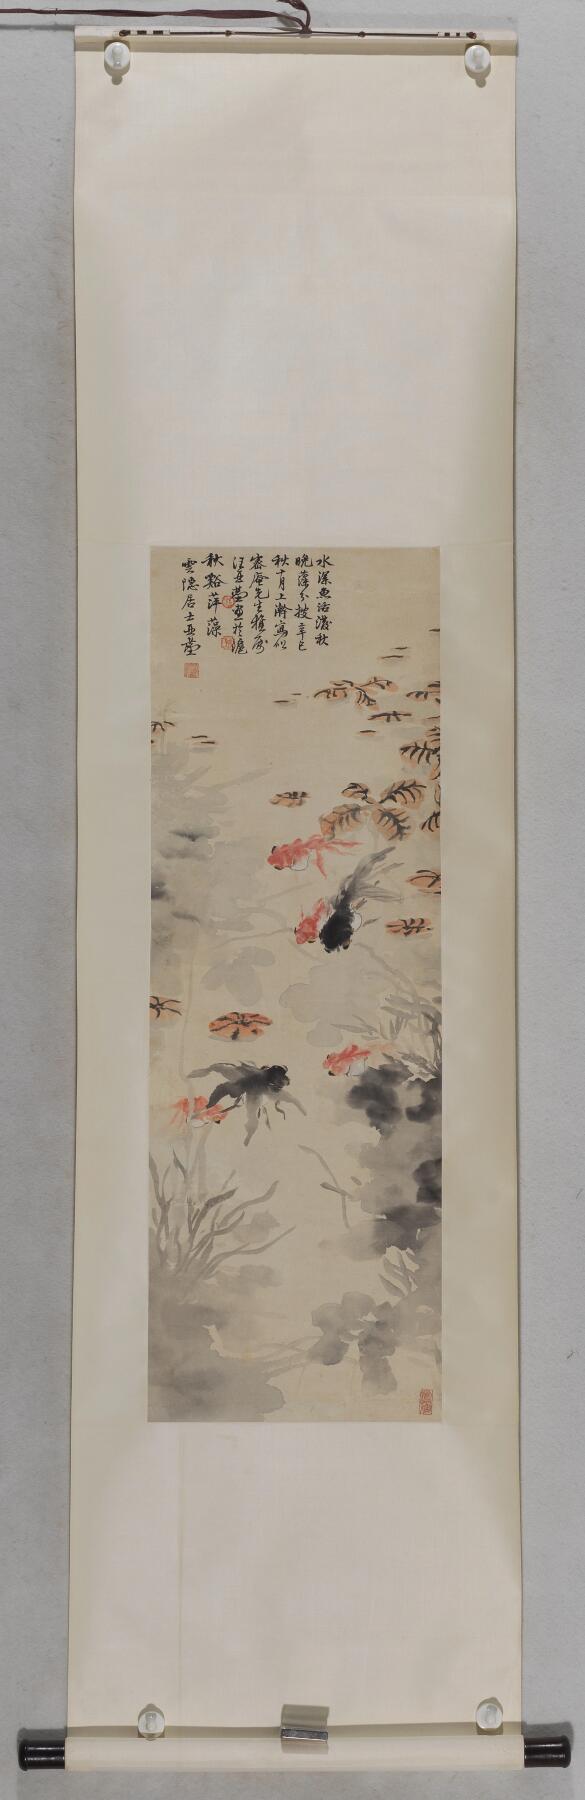 水深魚活潑秋
晚藻分披辛巳
秋十月上澣寫似
容盦先生雅屬
汪亞塵畫於滬
秋谿萍藻
雲隱居士亞塵